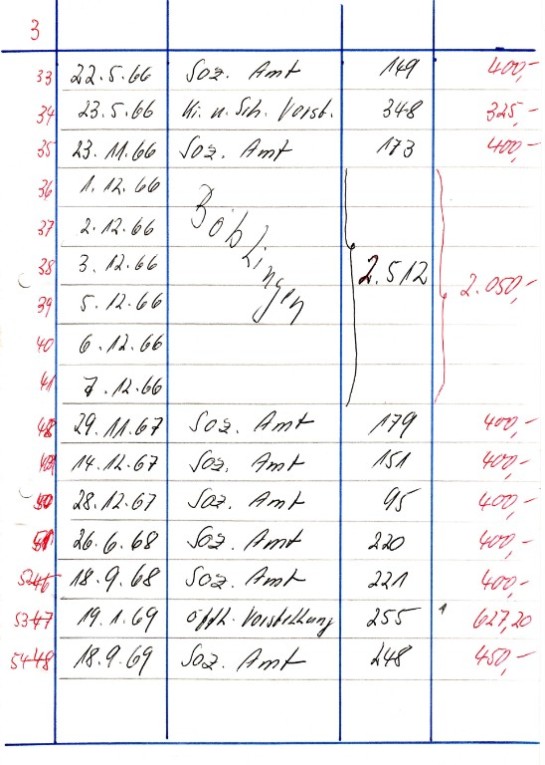 3
33 22.5.66 Soz. Amt 149 400,-
34 23.5.66 Ki. u. Sch. Vorst. 348 325,-
35 23.11.66 Soz. Amt 173 400,-
36 1.12.66
37 2.12.66 Böblingen
38 3.12.66 2.512 2.050,-
39 5.12.66
40 6.12.66
41 7.12.66
48 29.11.67 Soz. Amt 179 400,-
14.12.67 Soz. Amt 151 400,-
50 28.12.67 Soz. Amt 95 400,-
51 26.6.68 Soz. Amt 220 400,-
52 46 18.9.68 Soz. Amt 221 400,-
53 47 19.1.69 öfftl. Vorstellung 255 627,20
54 48 18.9.69 Soz. Amt 248 450,-